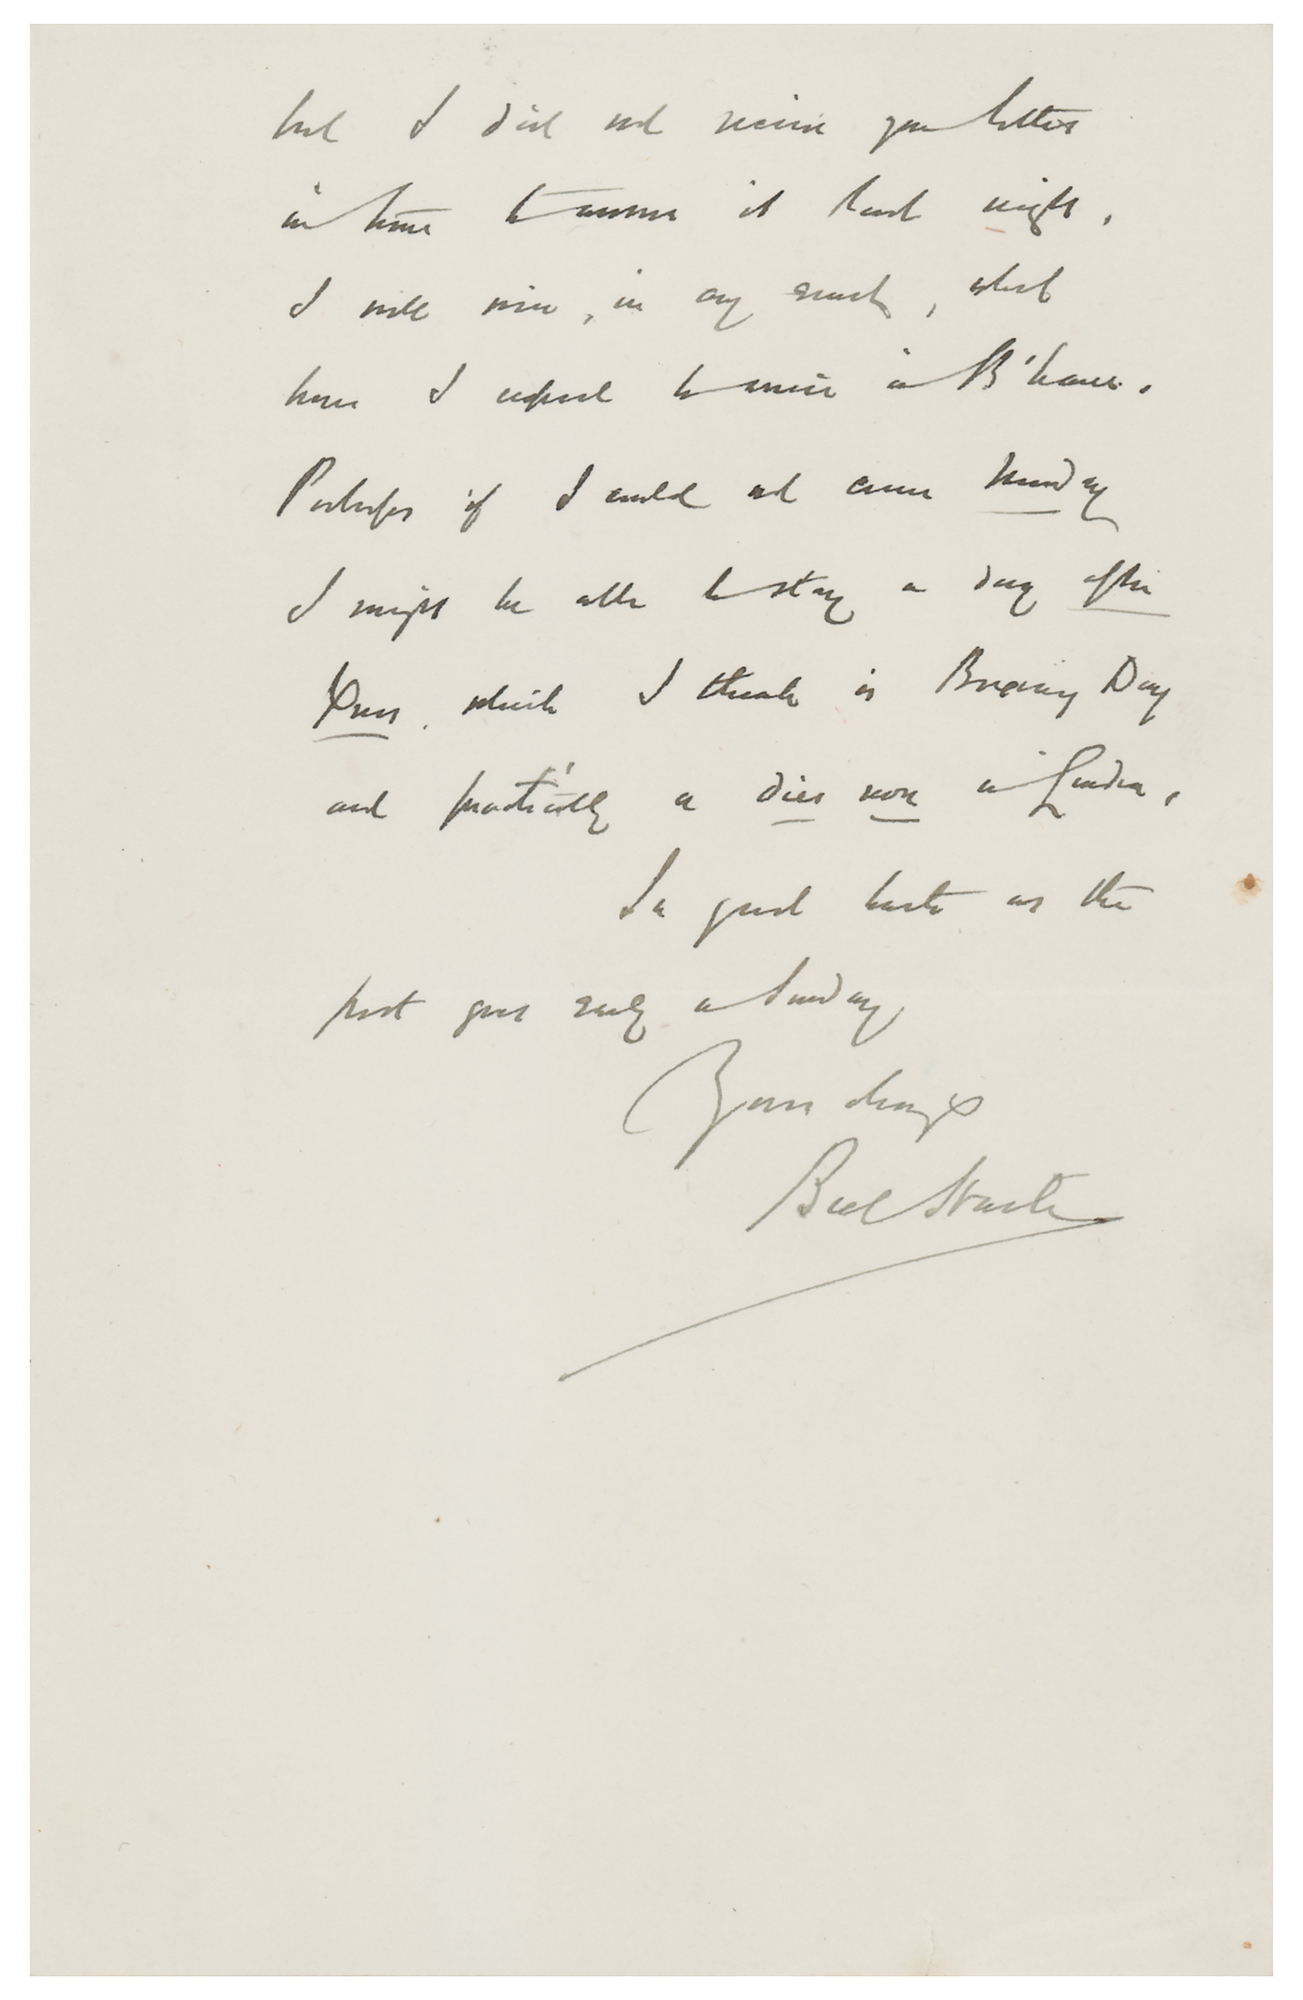 but I did not receive your letter
in time to answer it last night.
I will wire, in any event, what
hour I expect to arrive in B'ham.
Perhaps if I could not come Monday
I might be able to stay a day after
Xmas. which I think is Boxing Day
and practically a dies non in London.
In great haste as the
post goes early on Sunday
Yours always
Bram Stoker